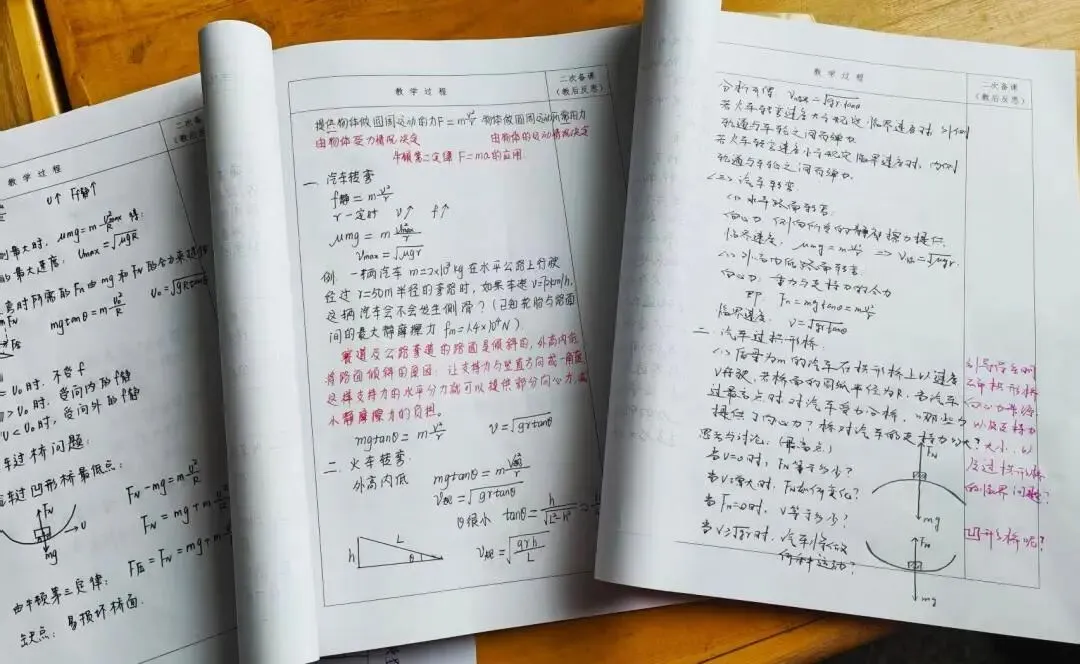 二次备
教学过程
v↑ Ff静↑
μmg = m v²max/R 得:
最大速度: Vmax = √μgR
mg 和 FN 的合力来提供
mgtanθ = m v²/R V₀ = √gRtanθ
= V₀ 时, 不受 f
> V₀ 时, 受向内的 f静
V < V₀ 时, 受向外的 f静
车过桥问题:
车过凹形桥最低点:
FN
v
mg
FN - mg = m v²/R
FN = mg + m
F压 = FN = mg + m
由牛顿第三定律:
缺点: 易损坏桥面.
教学过程
二次备课
(教后反思)
提供物体做圆周运动的力 F = m v²/r 物体做圆周运动所需的力
由物体受力情况决定 由物体的运动情况决定
牛顿第二定律 F = ma 的应用
一 汽车转弯
f静 = m v²/r
r 一定时 v↑ f↑
μmg = m v²max/r
Vmax = √μgr
例. 一辆汽车 m=2×10³kg 在水平公路上行驶
经过 r=50m 半径的弯路时, 如果车速 V=72km/h,
这辆汽车会不会发生侧滑? (已知轮胎与路面
间的最大静摩擦力 fm=1.4×10⁴N)
赛道及公路弯道的路面是倾斜的, 外高内低
将路面倾斜的原因: 让支持力与竖直方向成一角度
这样支持力的水平分力就可以提供部分向心力, 减
小静摩擦力的负担。
mgtanθ = m v²/r v = √grtanθ
二. 火车转弯
外高内低 mgtanθ = m v²/r
= √grtanθ
θ很小 tanθ = h/√L²-h² ≈
h
L
θ
= √grh/L
教学过程
二次备课
(教后反思)
分析可得 Vmax = √grtanθ
若火车转弯速度大于规定临界速度时, 外侧
轨道与车轮之间有弹力.
若火车转弯速度小于规定临界速度时, 内侧
轨道与车轮之间有弹力.
(二) 汽车转弯.
(1) 水平路面转弯.
向心力: 侧向所受的静摩擦力提供.
临界速度: μmg = m v²/r ⇒ V临 = √μgr.
(2) 外高内低路面转弯.
向心力: 重力与支持力的合力
即: Fn = mgtanθ = m v²/r
临界速度: V = √grtanθ
二. 汽车过拱形桥.
(1) 质量为m的汽车在拱形桥上以速度
V行驶, 若桥面的圆弧半径为R, 当汽车
过最高点时对汽车受力分析, 哪些力
提供了向心力? 桥对汽车的支持力多大?
思考与讨论: (最高点)
当V=0时, FN等于多少?
当V增大时, FN如何变化?
当FN=0时, V等于多少?
当V≥√gr时, 汽车将做
何种运动?
引导学生
拱形桥
以及支持力
大小.
过拱形桥
的临界问题?
凹形桥呢?
FN
mg
FN
mg